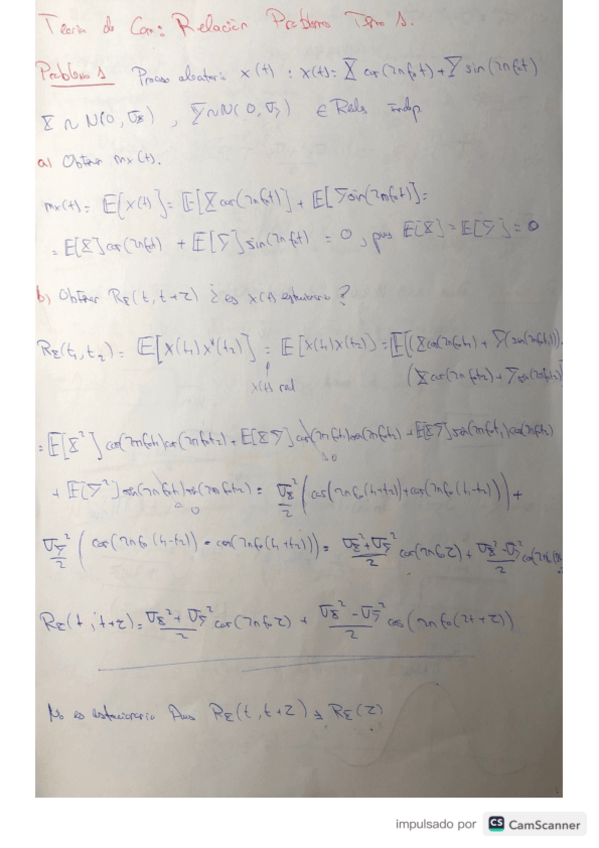 Teoría de Com: Relación Problemas Tema 1.
Problema 1 Proceso aleatorio x(t) : x(t) = X cos(2πf₀t) + Y sin(2πf₀t)
X ~ N(0, σx) , Y ~ N(0, σy) ∈ Reals indp
a) Obtener mx(t).
mx(t) = E[x(t)] = E[X cos(2πf₀t)] + E[Y sin(2πf₀t)] =
= E[X] cos(2πf₀t) + E[Y] sin(2πf₀t) = 0 , pues E[X] = E[Y] = 0
b) Obtener Rx(t, t+τ) ¿es x(t) estacionario?
Rx(t₁,t₂) = E[x(t₁)x*(t₂)] = E[x(t₁)x(t₂)] = E[(X cos(2πf₀t₁) + Y(sin(2πf₀t₁)).
x(t) real (X cos(2πf₀t₂) + Y sen(2πf₀t₂)]
= E[X²] cos(2πf₀t₁)cos(2πf₀t₂) + E[XY] cos(2πf₀t₁)sen(2πf₀t₂) + E[XY] sin(2πf₀t₁)cos(2πf₀t₂)
+ E[Y²] sin(2πf₀t₁)sin(2πf₀t₂) = σx²/2 (cos(2πf₀(t₁+t₂)) + cos(2πf₀(t₁-t₂))) +
σy²/2 (cos(2πf₀(t₁-t₂)) - cos(2πf₀(t₁+t₂))) = σx²+σy²/2 cos(2πf₀τ) + σx²-σy²/2
Rx(t, t+τ) = σx²+σy²/2 cos(2πf₀τ) + σx²-σy²/2 cos(2πf₀(2t+τ))
No es estacionario Rx(t, t+τ) ≠ Rx(τ)
impulsado por CS CamScanner